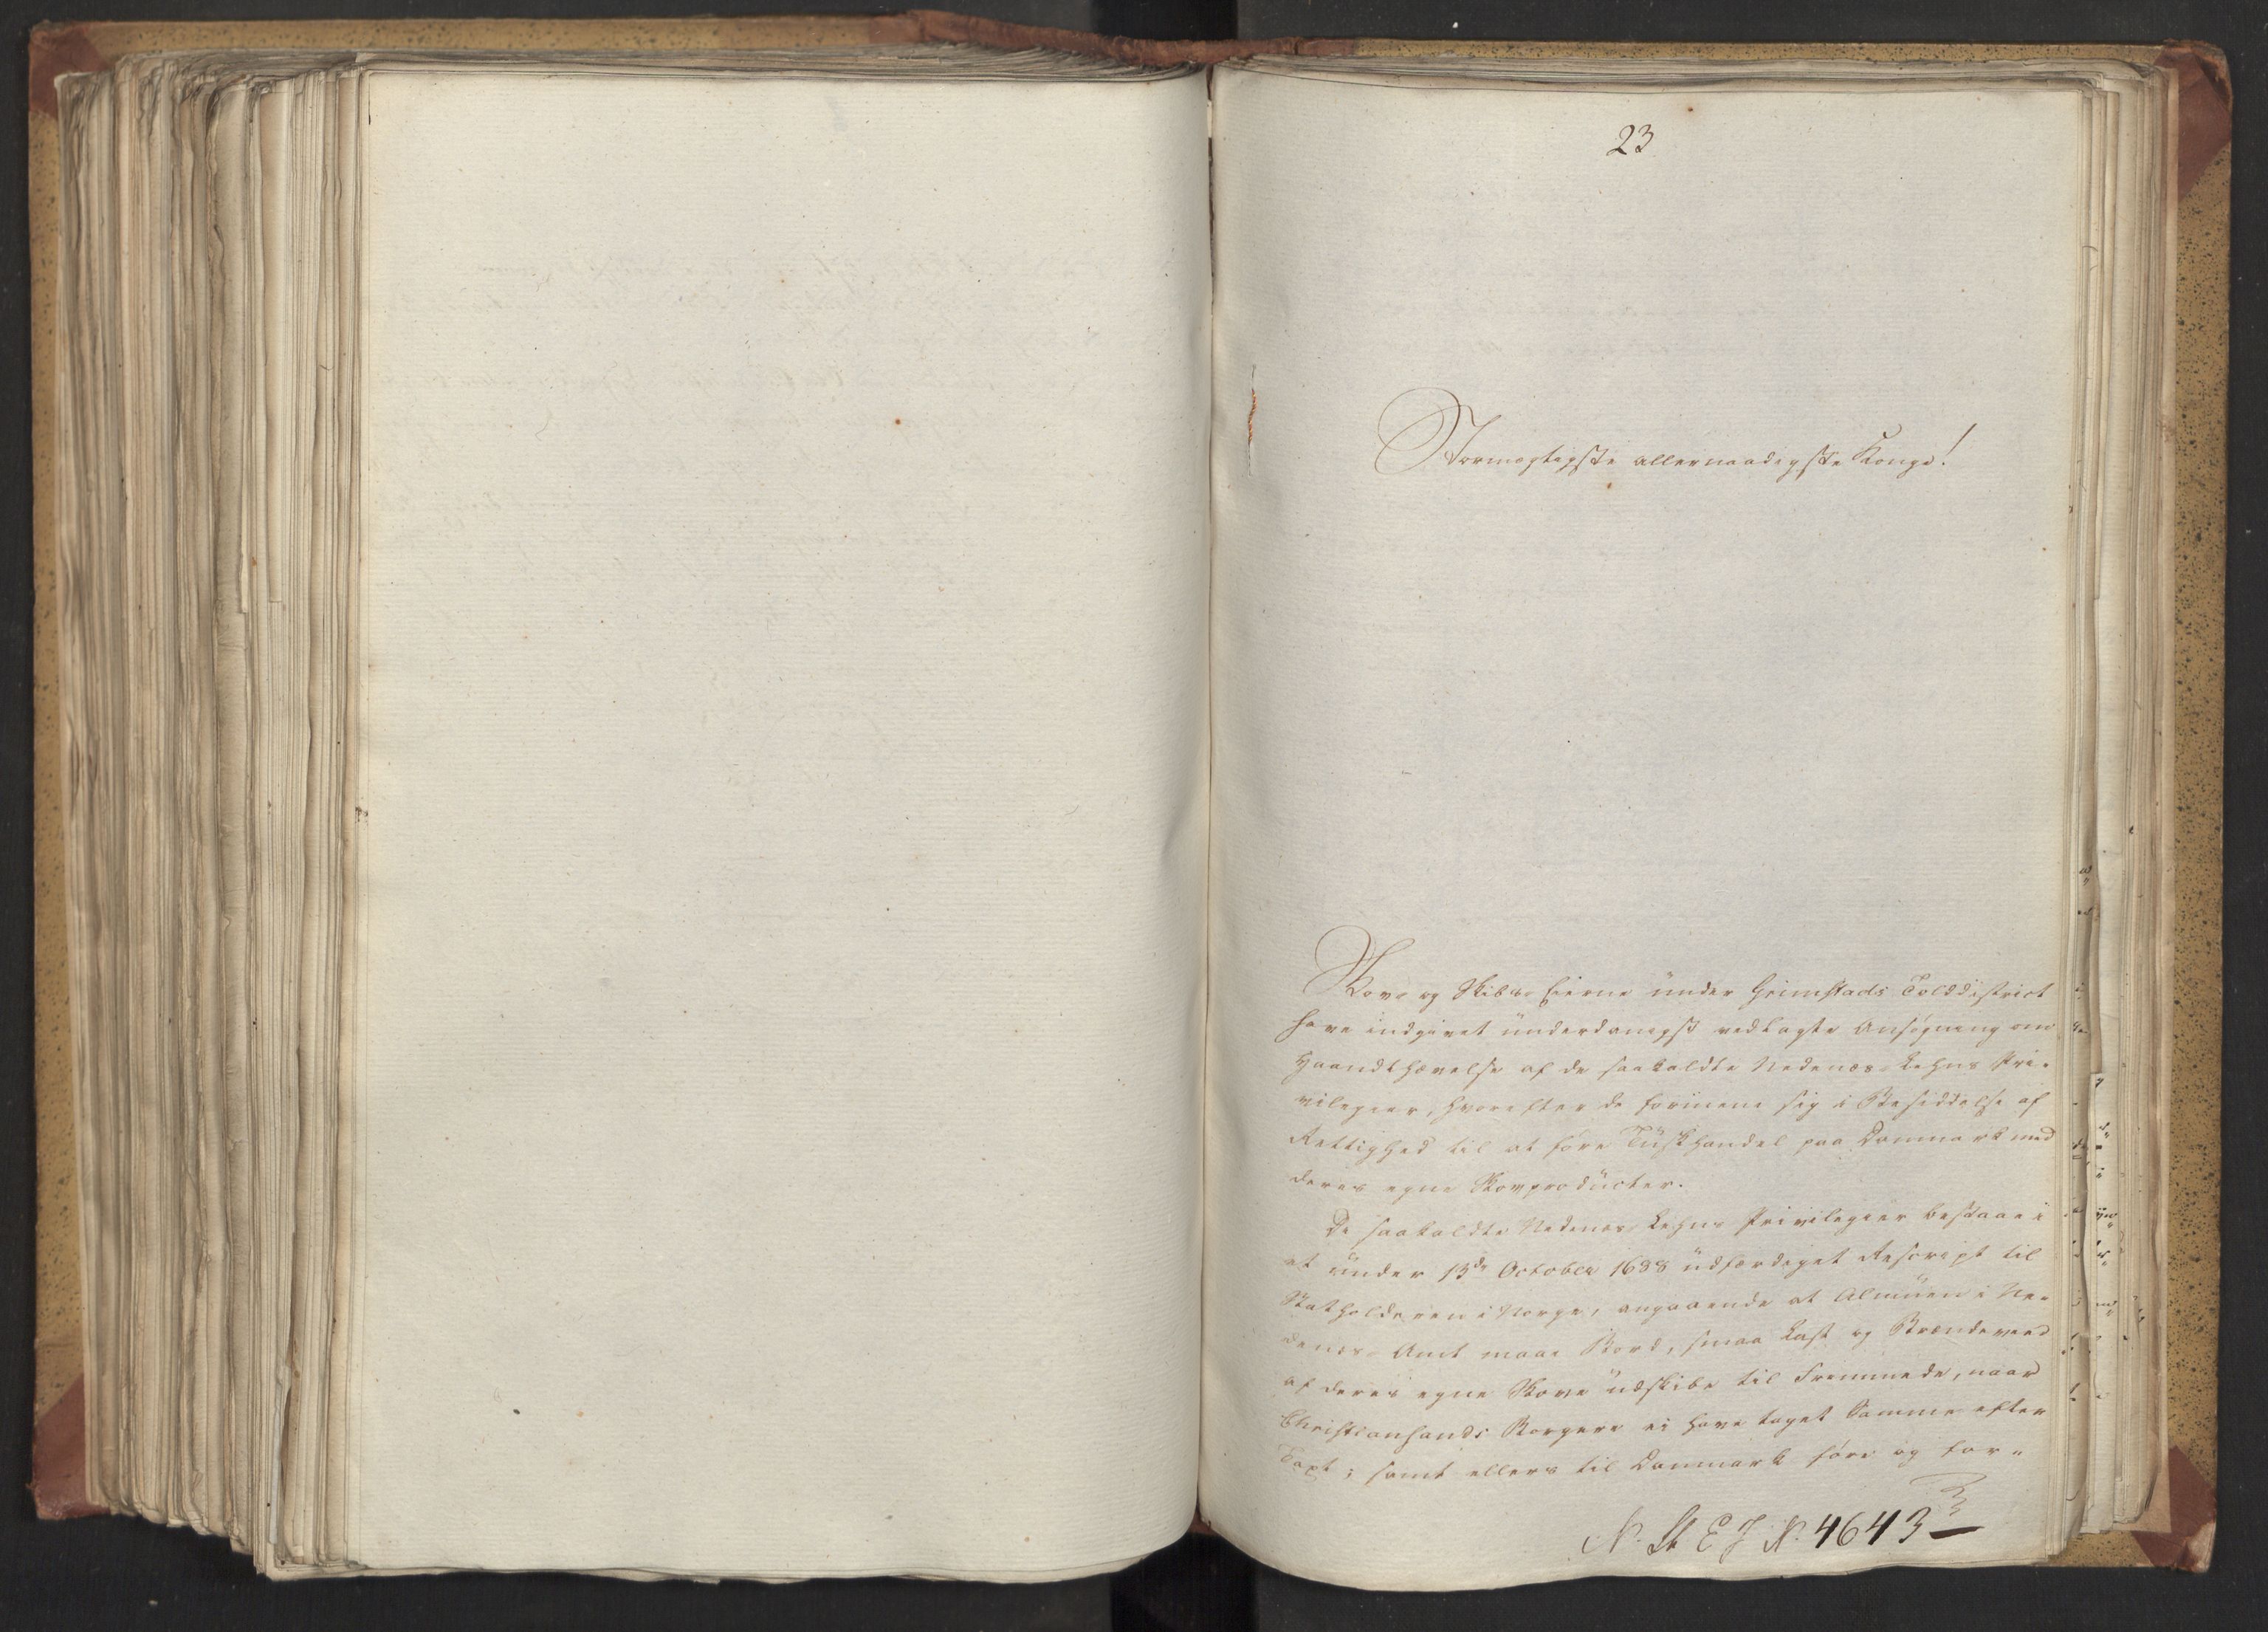 23
Stormægtigste allernaadigste Konge!
Skov- og Skibs-Eierne under Grimstads Tolddistrict
have indgivet underdanigst vedlagte Ansøgning om
Haandthævelse af de saakaldte Nedenæs-Lehns Pri-
vilegier, hvorefter de formene sig i Besiddelse af
Rettighed til at føre Tuskhandel paa Danmark med
deres egne Skovproducter.
De saakaldte Nedenæs-Lehns Privilegier bestaae i
et under 13de October 1688 udfærdiget Rescript til
Statholderen i Norge, angaaende at Almuen i Ne-
denæs-Amt maae Bord, smaa Last og Brændeveed
af deres egne Skove udskibe til Fremmede, naar
Christiansands Borgere ei have taget Samme efter
Taxt; samt ellers til Danmark føre og for-
N. St E J N. 4643